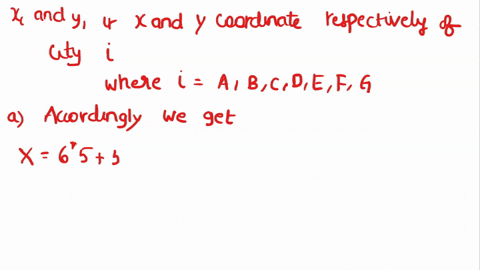 x, and y, is x and y coordinate respectively of
city i
where i = A, B, C, D, E, F, G
a) Accordingly we get
X = 6*5 +